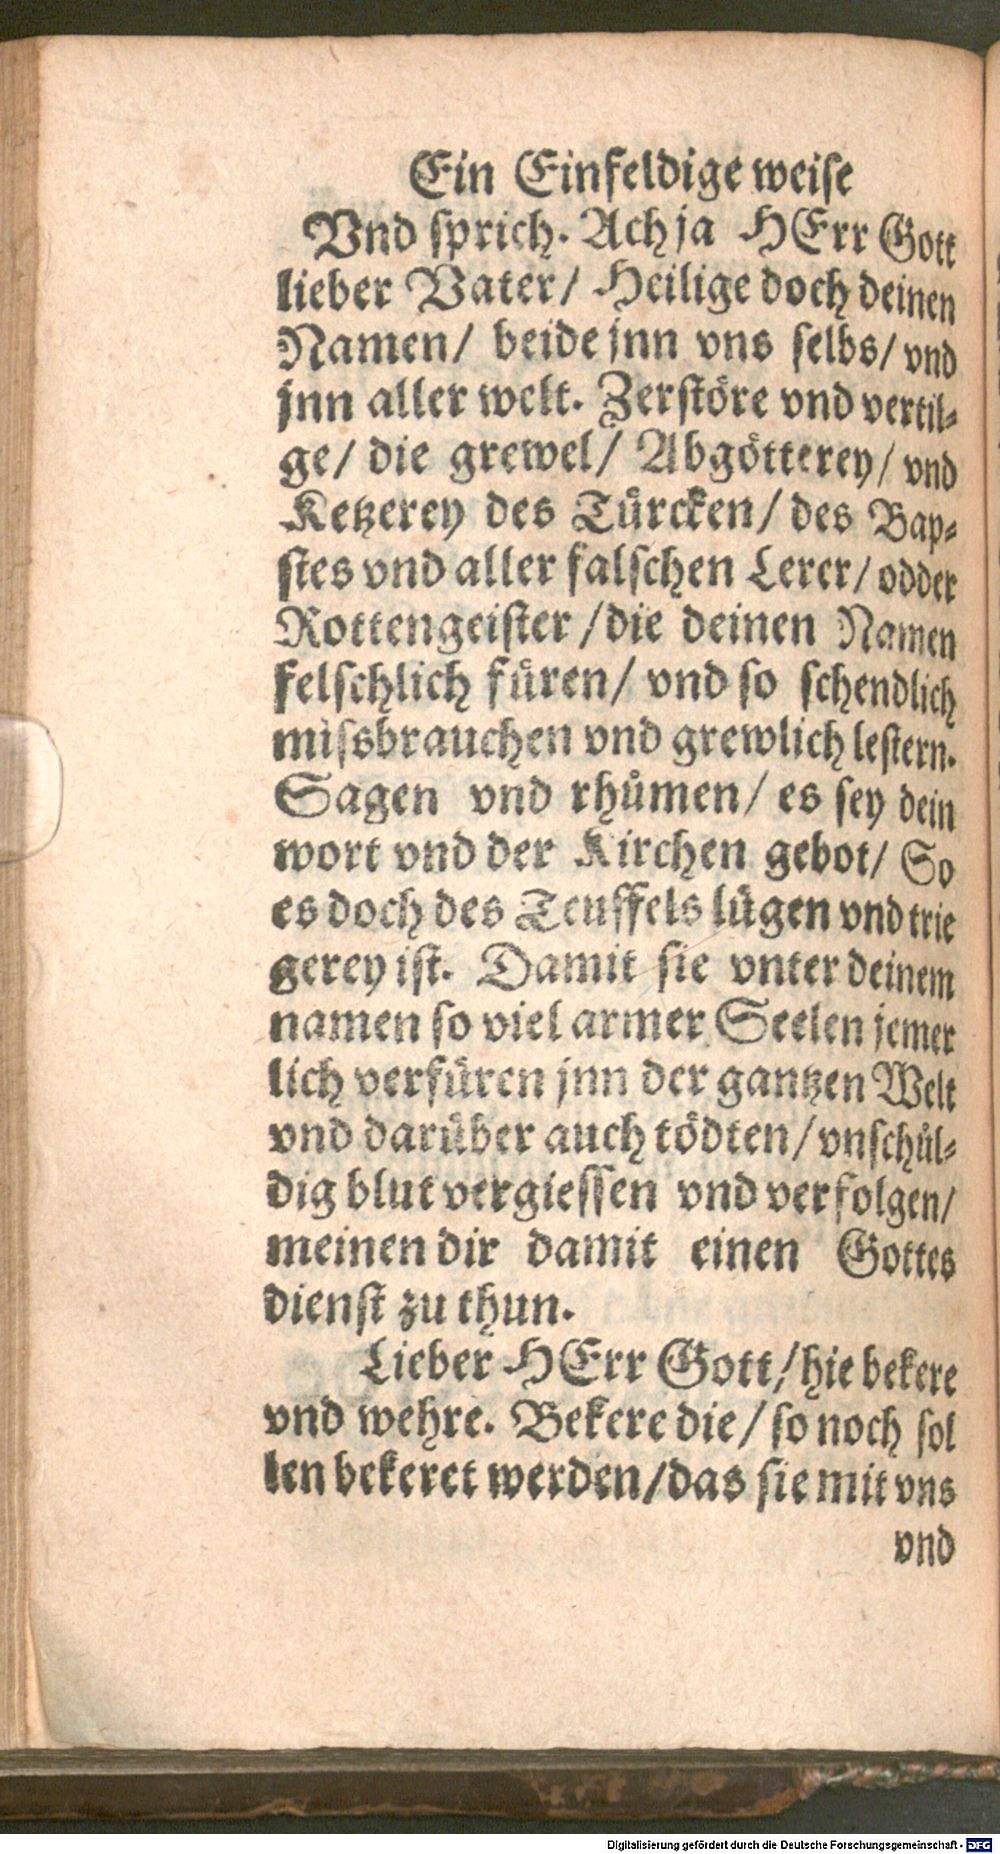 Ein Einfeldige weise
Vnd sprich. Ach ja HErr Gott
lieber Vater/ Heilige doch deinen
Namen/ beide jnn vns selbs/ vnd
jnn aller welt. Zerstöre vnd vertil⸗
ge/ die grewel/ Abgötterey/ vnd
Ketzerey des Türcken/ des Bap⸗
stes vnd aller falschen Lerer/ odder
Rottengeister/ die deinen Namen
felschlich füren/ vnd so schendlich
missbrauchen vnd grewlich lestern.
Sagen vnd rhůmen/ es sey dein
wort vnd der Kirchen gebot/ So
es doch des Teuffels lügen vnd trie
gerey ist. Damit sie vnter deinem
namen so viel armer Seelen jemer
lich verfüren jnn der gantzen Welt
vnd darüber auch tödten/ vnschůl⸗
dig blut vergiessen vnd verfolgen/
meinen dir damit einen Gottes
dienst zu thun.
Lieber HErr Gott/ hie bekere
vnd wehre. Bekere die/ so noch sol
len bekeret werden/ das sie mit vns
vnd
Digitalisierung gefördert durch die Deutsche Forschungsgemeinschaft - DFG